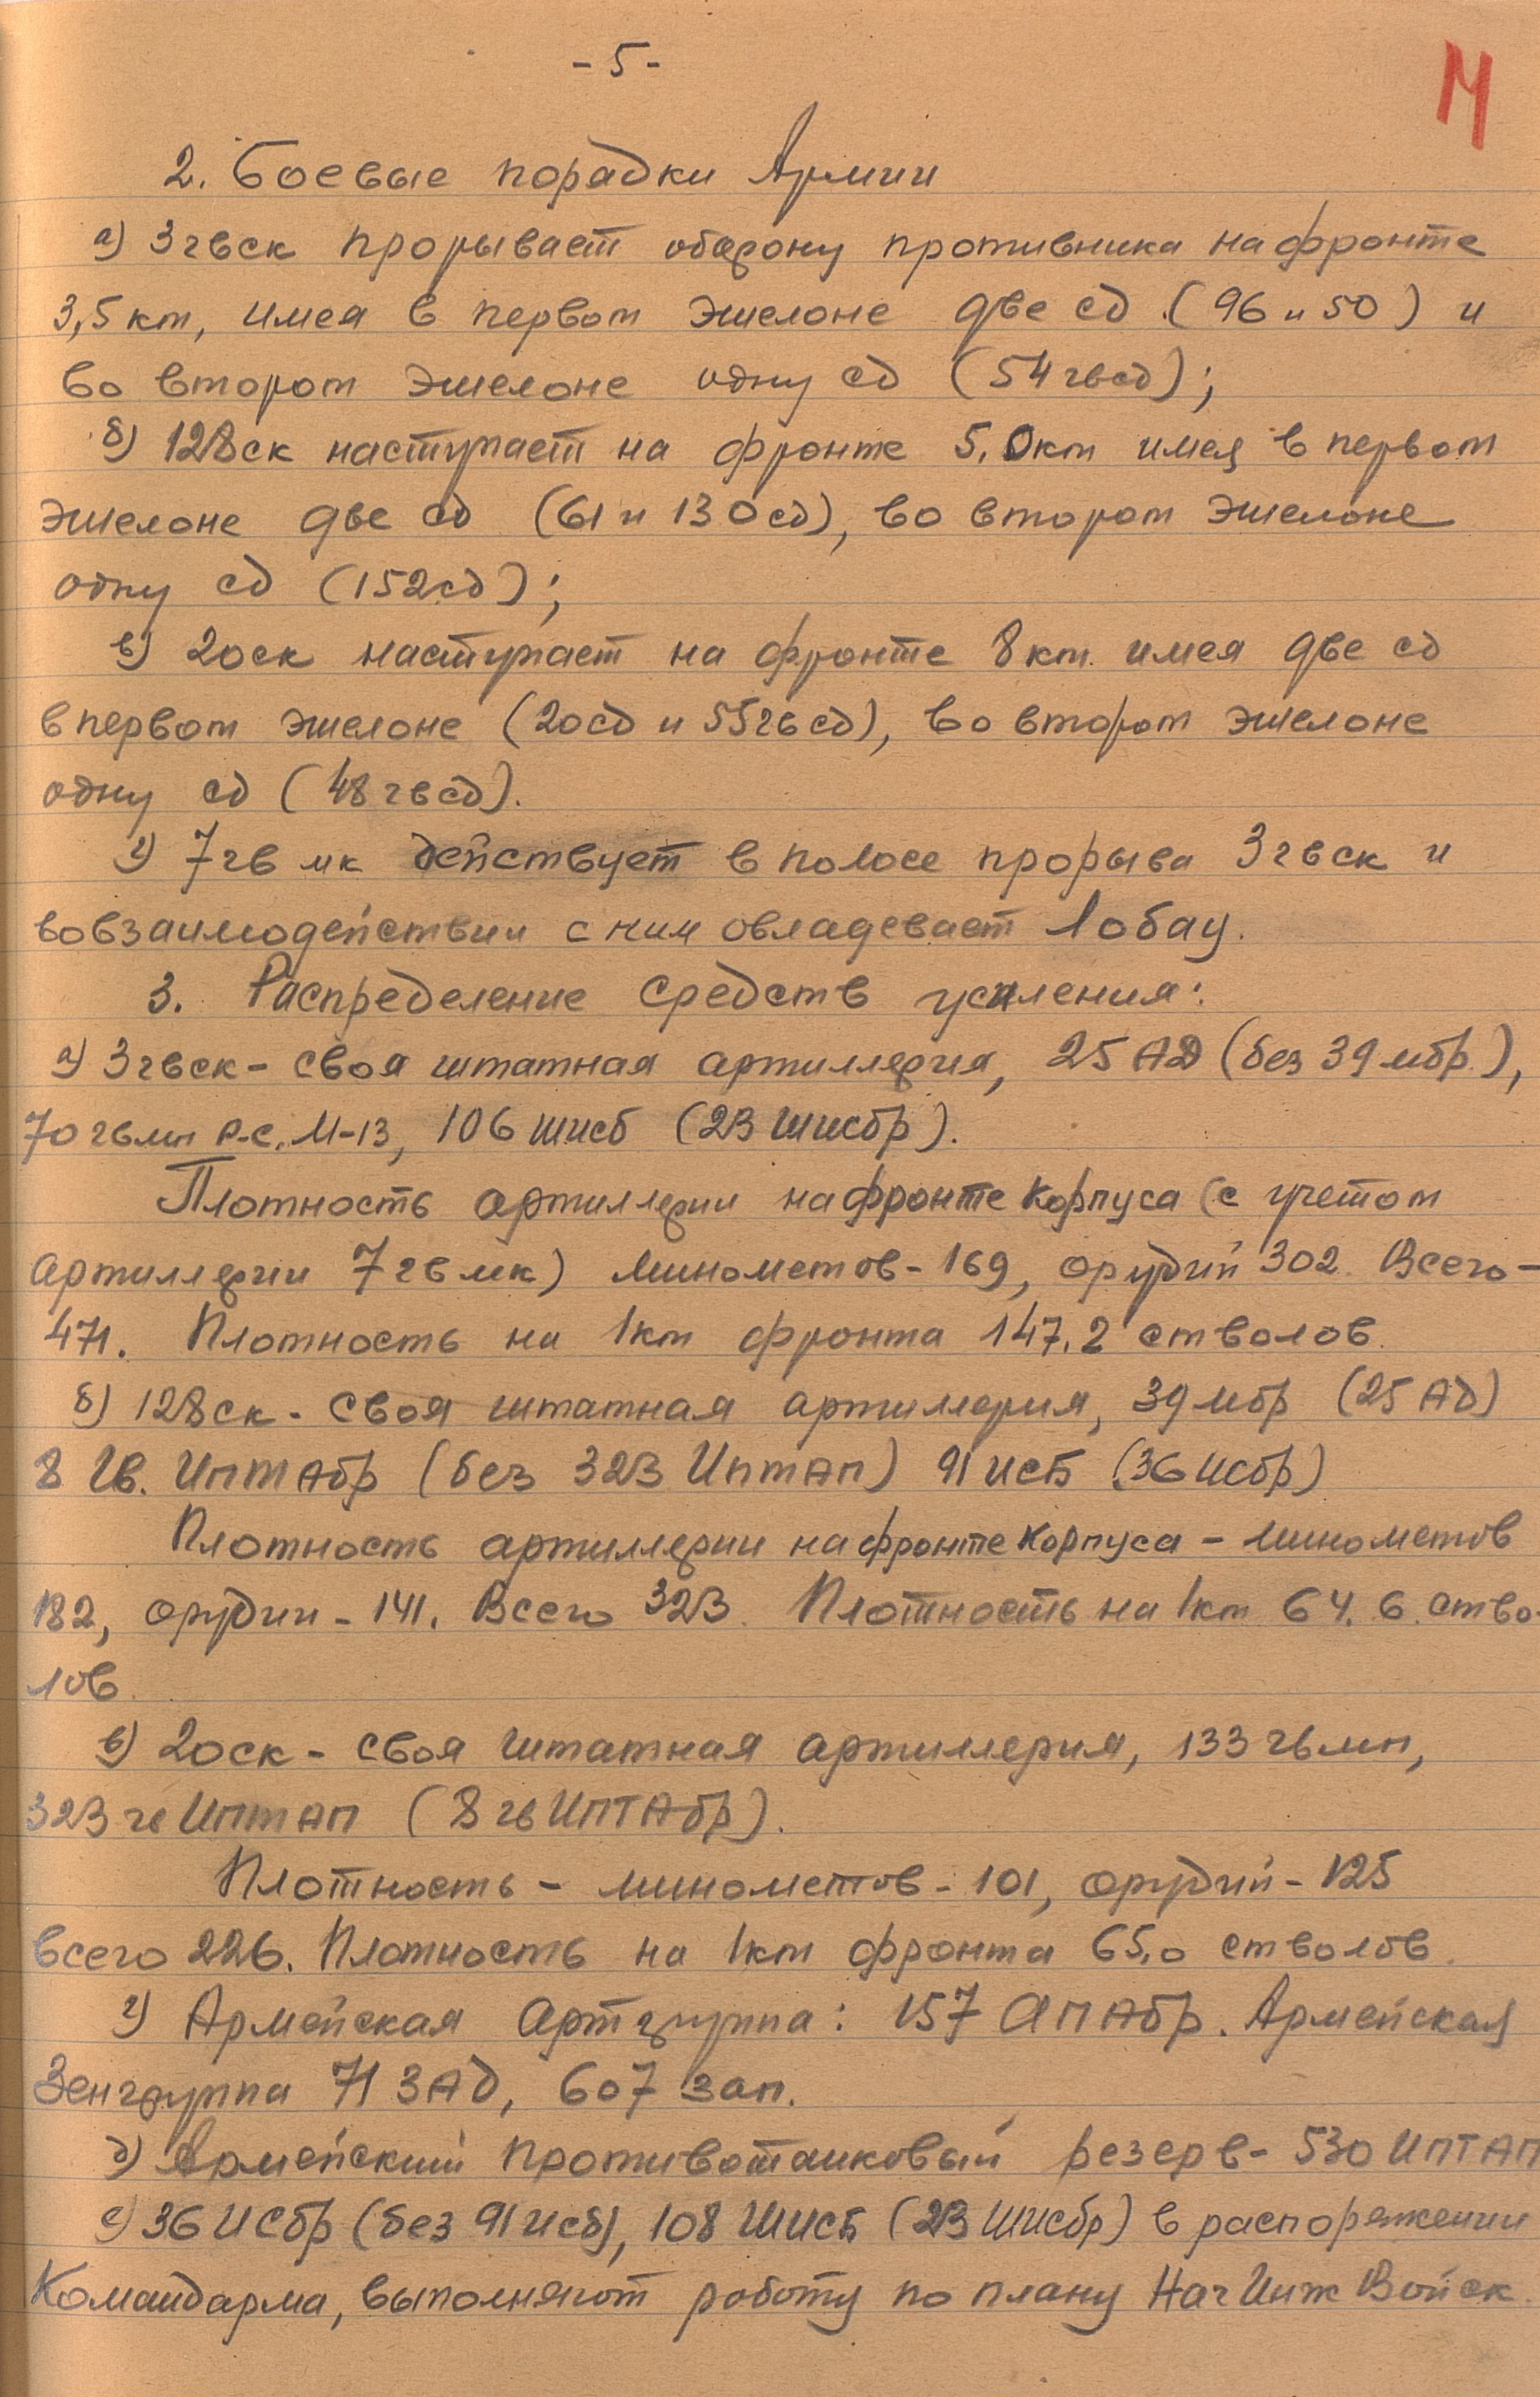 - 5 -
2. Боевые порядки Армии
а) 3 гвск прорывает оборону противника на фронте
3,5 км, имея в первом эшелоне две сд (96 и 50) и
во втором эшелоне одну сд (54 гвсд);
б) 128 ск наступает на фронте 5,0 км имея в первом
эшелоне две сд (61 и 130 сд), во втором эшелоне
одну сд (152 сд);
в) 20 ск наступает на фронте 8 км. имея две сд
в первом эшелоне (20 сд и 55 гв сд), во втором эшелоне
одну сд (48 гв сд).
г) 7 гв мк действует в полосе прорыва 3 гвск и
во взаимодействии с ним овладевает Лобау.
3. Распределение средств усиления:
а) 3 гвск - своя штатная артиллерия, 25 АД (без 39 мбр.),
70 гв мп Р-С. М-13, 106 шисб (23 шисбр).
Плотность артиллерии на фронте корпуса (с учетом
артиллерии 7 гв мк) минометов - 169, орудий 302. Всего -
471. Плотность на 1 км фронта 147.2 стволов.
б) 128 ск - своя штатная артиллерия, 39 мбр (25 АД)
8 Гв. ИптАбр (без 323 Иптап) 91 исб (36 Исбр)
Плотность артиллерии на фронте корпуса - минометов
182, орудий - 141. Всего 323. Плотность на 1 км 64.6. ство-
лов.
в) 20 ск - своя штатная артиллерия, 133 гв мп,
323 гв Иптап (8 гв ИПТАбр).
Плотность - минометов - 101, орудий - 125
всего 226. Плотность на 1 км фронта 65,0 стволов.
г) Армейская Артгруппа: 157 АПАбр. Армейская
Зенгруппа 71 ЗАД, 607 зап.
д) Армейский противотанковый резерв - 530 ИПТАП
е) 36 Исбр (без 91 исб), 108 Шисб (23 Шисбр) в распоряжении
Командарма, выполняют работу по плану Нач Инж Войск.